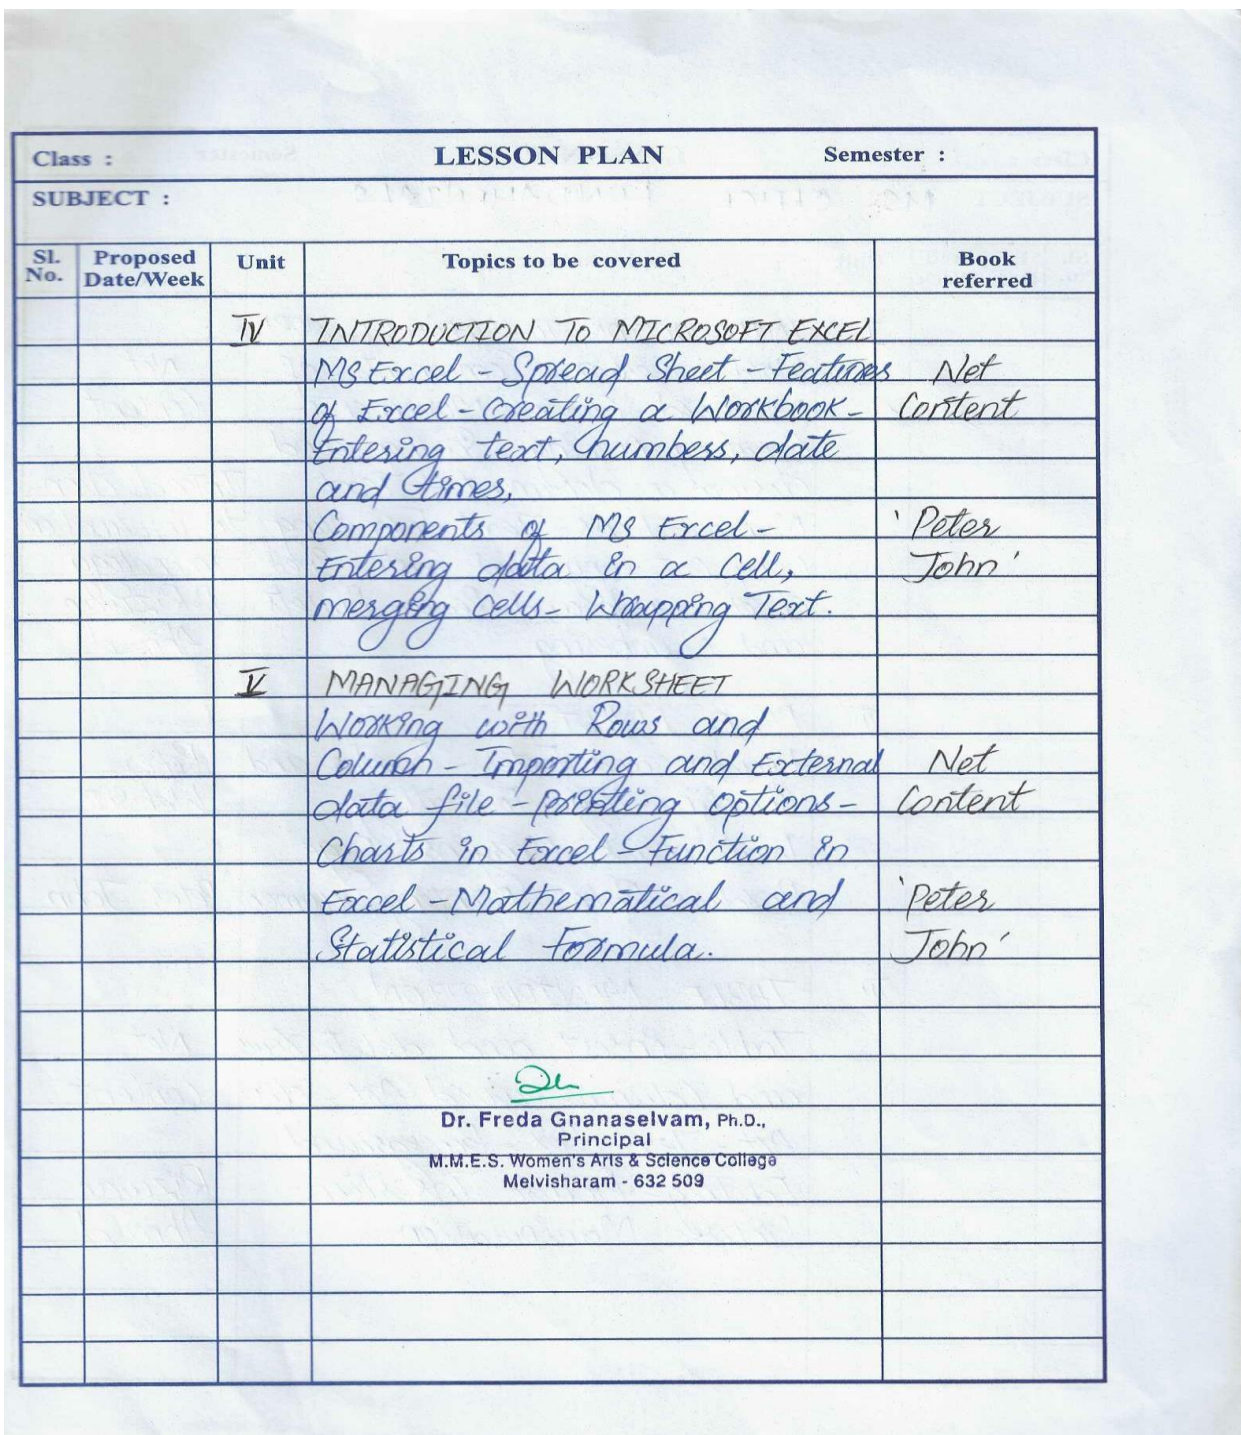 Class : LESSON PLAN Semester :
SUBJECT :
Sl. No. Proposed Date/Week Unit Topics to be covered Book referred
IV INTRODUCTION TO MICROSOFT EXCEL
MS Excel - Spread Sheet - Features Net
of Excel - Creating a Workbook - Content
Entering text, numbers, date
and times,
Components of MS Excel - 'Peter
Entering data in a cell, John'
merging cells - Wrapping Text.
V MANAGING WORKSHEET
Working with Rows and
Column - Importing and External Net
data file - Printing options - Content
Charts in Excel - Function in
Excel - Mathematical and 'Peter
Statistical Formula. John'
Dr. Freda Gnanaselvam, Ph.D.,
Principal
M.M.E.S. Women's Arts & Science College
Melvisharam - 632 509